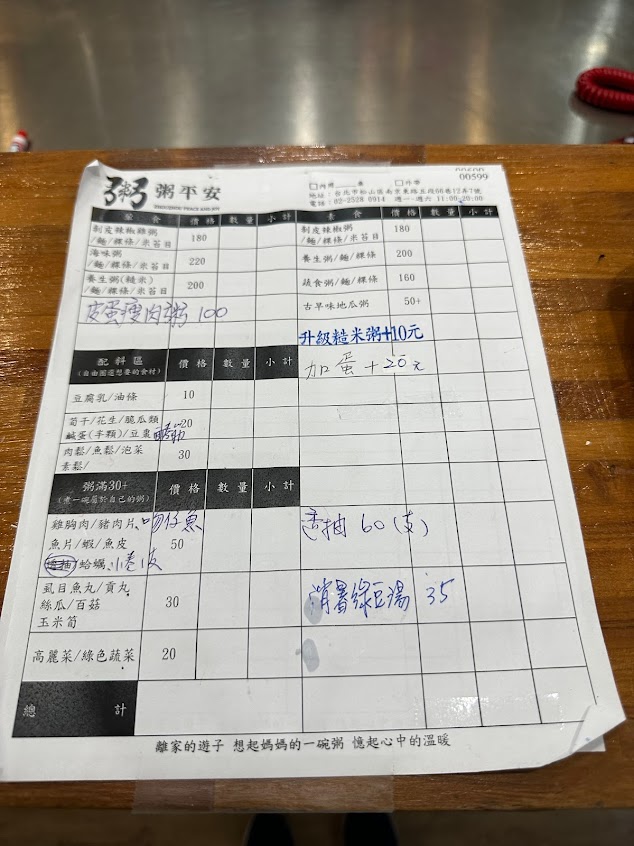 00599
粥 粥平安
□內用 桌 □外帶
地址：台北市松山區南京東路五段66巷12弄7號
電話：02-2528 0914 週一-週六 11:00-20:00
葷食 價格 數量 小計
剝皮辣椒雞粥
/麵/粿條/米苔目 180
海味粥
/麵/粿條/米苔目 220
養生粥(糙米)
/麵/粿條/米苔目 200
皮蛋瘦肉粥 100
素食 價格 數量 小計
剝皮辣椒粥
/麵/粿條/米苔目 180
養生粥/麵/粿條 200
蔬食粥/麵/粿條 160
古早味地瓜粥 50+
升級糙米粥+10元
加蛋+20元
配料區
(自由圈選想要的食材) 價格 數量 小計
豆腐乳/油條 10
筍干/花生/脆瓜類
鹹蛋(半顆)/豆棗 20
肉鬆/魚鬆/泡菜
素鬆/ 30
粥滿30+
(煮一碗屬於自己的粥) 價格 數量 小計
雞胸肉/豬肉片、吻仔魚
魚片/蝦/魚皮 50
/蛤蠣、小卷
虱目魚丸/貢丸
絲瓜/百菇 30
玉米筍
高麗菜/綠色蔬菜 20
透抽 60 (支)
消暑綠豆湯 35
總計
離家的遊子 想起媽媽的一碗粥 憶起心中的溫暖